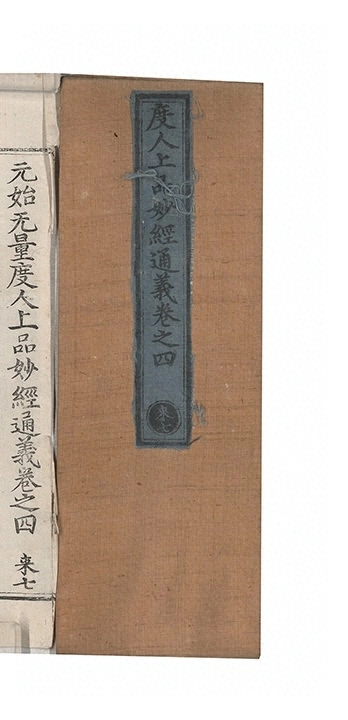 度人上品妙經通義卷之四
來七
元始无量度人上品妙經通義卷之四 來七